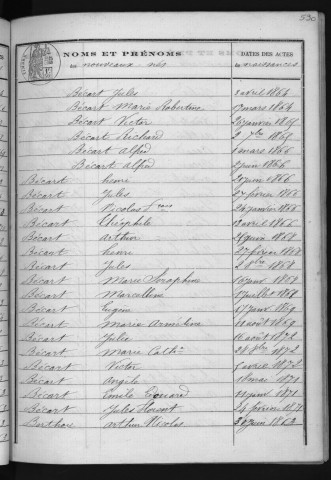 530
NOMS ET PRÉNOMS
DATES DES ACTES
des nouveaux-nés
de naissances
Bécart Jules avril 1864
Bécart Marie Robertine mars 1864
Bécart Victor 26 janvier 1865
Bécart Richard 9 7bre 1865
Bécart Alfred 1 mars 1866
Bécart Alfred juin 1866
Bécart henri juin 1866
Bécart Jules 27 février 1866
Bécart Nicolas 24 janvier 1866
Bécart Théophile avril 1866
Bécart Arthur 26 juin 1868
Bécart henri 27 février 1868
Bécart Jules 1868
Bécart Marie Séraphine 1868
Bécart Marcelline juillet 1868
Bécart Eugène 1869
Bécart Marie Armeline août 1869
Bécart Julie 16 août 1872
Bécart Marie Cathne 24 1872
Bécart Victor 5 avril 1872
Bécart Angèle mai 1871
Bécart Emile Edouard juin 1871
Bécart Jules Florent 24 février 1871
Berthore arthur Nicolas 30 juin 1863